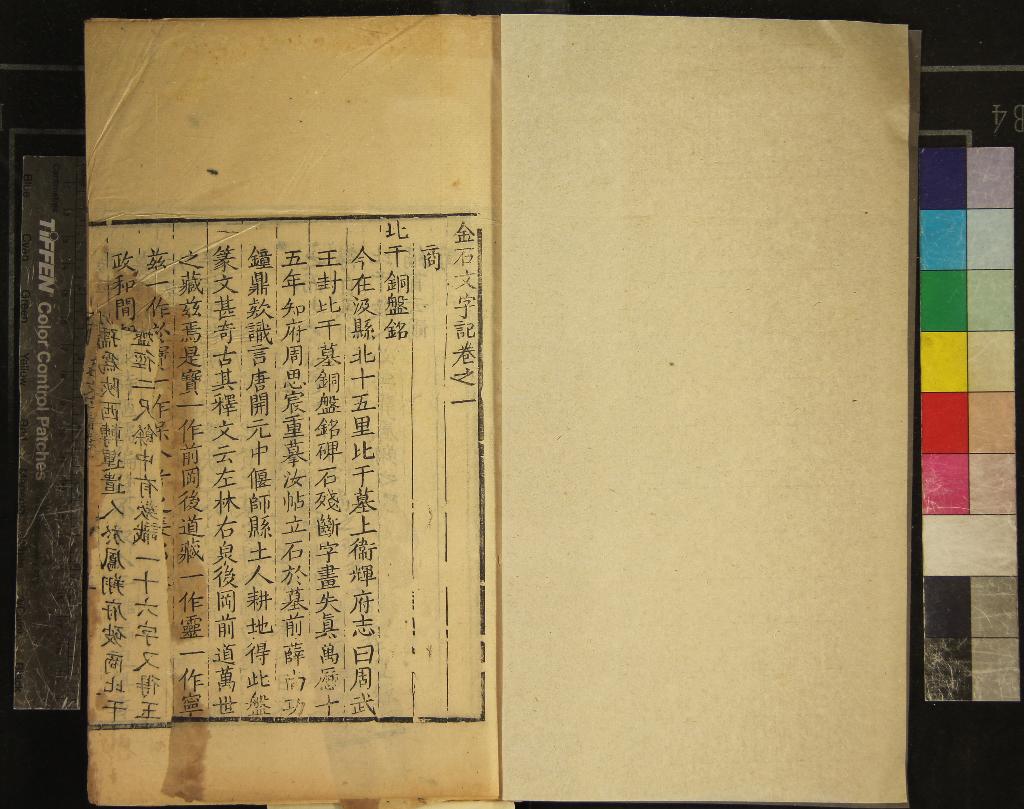 金石文字記卷之一
商
比干銅盤銘
今在汲縣北十五里比干墓上衞輝府志曰周武
王封比干墓銅盤銘碑石殘斷字畫失眞萬曆十
五年知府周思宸重摹汝帖立石於墓前薛尚功
鐘鼎欵識言唐開元中偃師縣土人耕地得此盤
篆文甚奇古其釋文云左林右泉後岡前道萬世
之藏玆焉是寶一作前岡後道藏一作靈一作寧
玆一作於寶一作保
政和間
孺爲陝西轉運遣人於鳳翔府破商比干
盤徑二尺餘中有欵識一十六字又得玉
TIFFEN Color Control Patches
B4